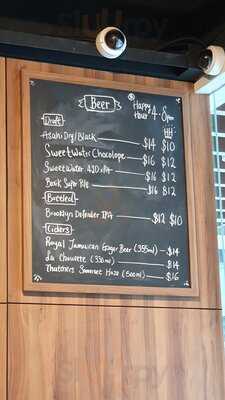 Beer
Happy Hour 4-8pm
Draft
Asahi Dry/Black $14 $10
SweetWater Chocolope $16 $12
SweetWater 420 IPA $16 $12
Bask Super Pils $16 $12
HH
Bottled
Brooklyn Defender IPA $12 $10
Ciders
Royal Jamaican Ginger Beer (355ml) $14
La Chouette (330ml) $14
Thatchers Somerset Haze (500ml) $16